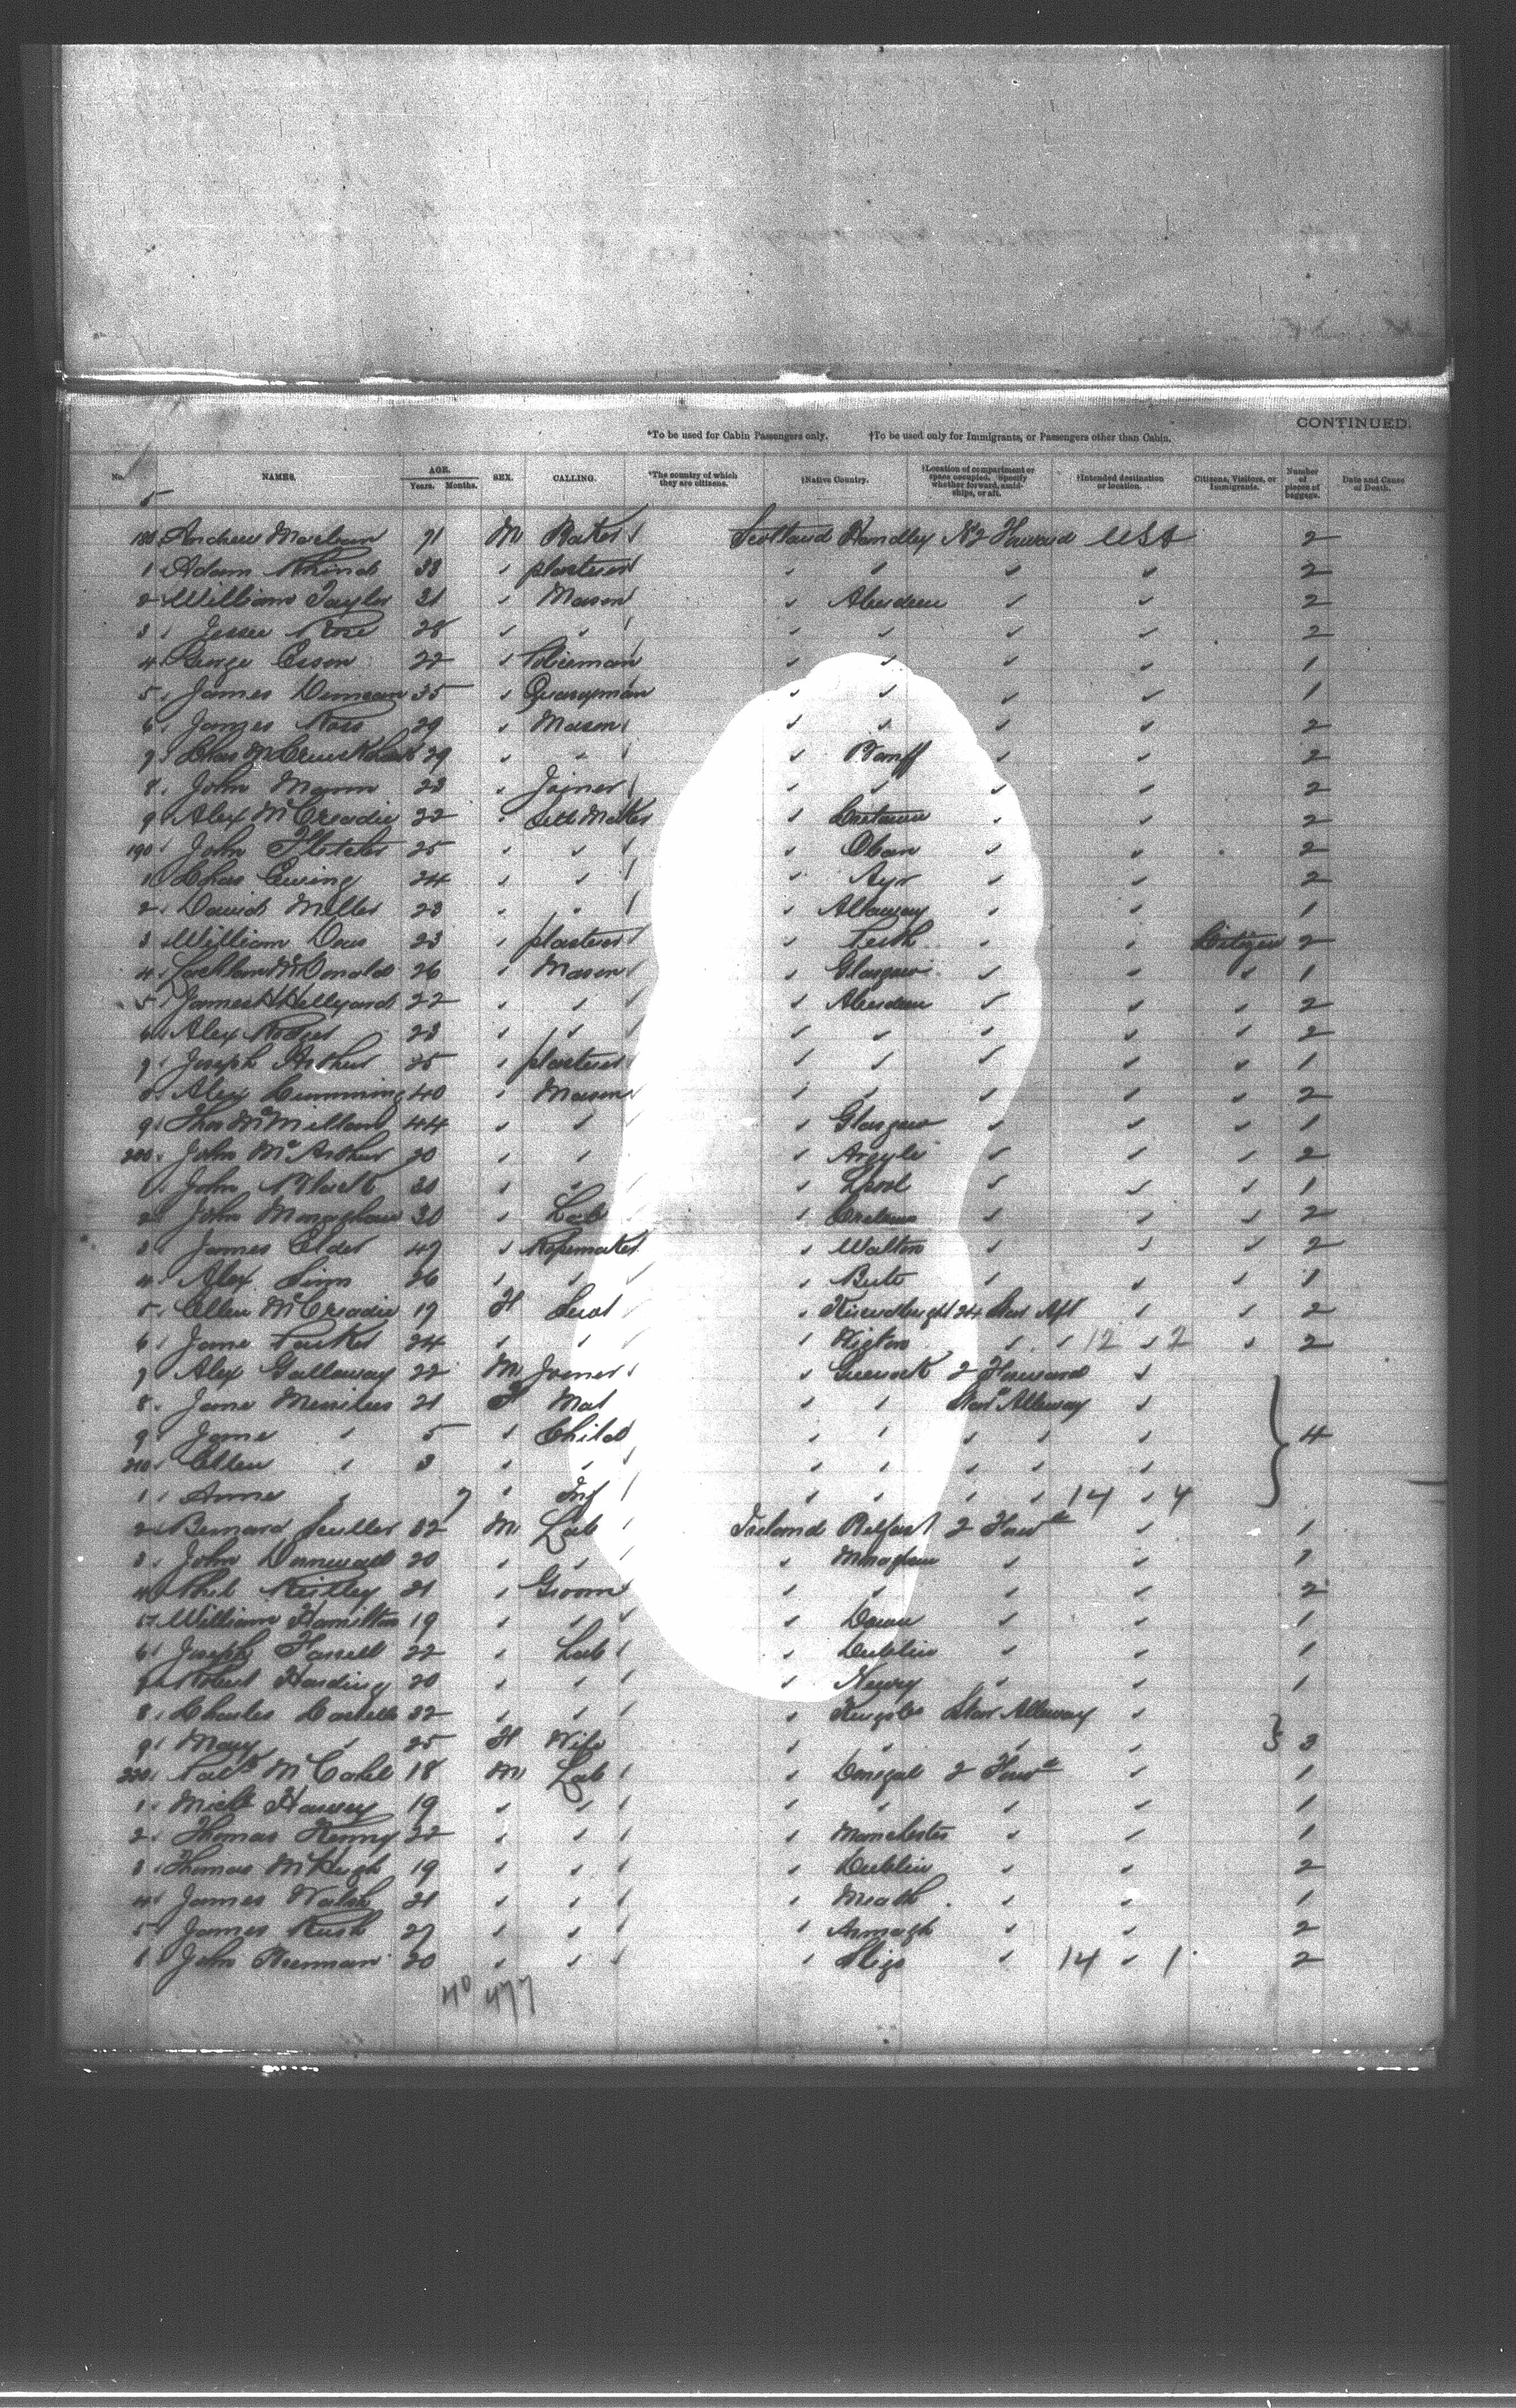 CONTINUED.
*To be used for Cabin Passengers only. †To be used only for Immigrants, or Passengers other than Cabin.
No. NAMES. AGE. Years. Months. SEX. CALLING. *The country of which they are citizens. †Native Country. †Location of compartment or space occupied. Specify whether forward, amidships, or aft. †Intended destination or location. Citizens, Visitors, or Immigrants. Number of pieces of baggage. Date and Cause of Death.
5
180 Andrew 21 M Baker Scotland No 2 Forward USA 2
1 Adam Rhind 33 plasterer 2
2 William Taylor 31 Mason Aberdeen 2
3 Rose 28 2
4 George Esson 22 Policeman 1
5 James Duncan 35 Quarryman 1
6 James Ross 29 Mason 2
7 Chas 29 Banff 2
8 John Mann 23 Joiner 2
9 Alex McCreadie 22 Sett Maker 2
190 John Fletcher 25 Oban 2
1 Chas Ewing 24 Ayr 2
2 David Miller 23 Alloway 1
3 William 23 plasterer Perth Citizen 2
4 Lachlan McDonald 26 Mason Glasgow 1
5 James H Hellyard 22 Aberdeen 2
6 Alex Rodger 23 2
7 Joseph Arthur 25 plasterer 1
8 Alex Cumming 40 Mason 2
9 Thos McMillan 44 Glasgow 1
200 John McArthur 20 Argyle 2
1 John Black 1
2 John Monaghan 30 Lab 2
3 James Elder 47 Ropemaker Walton 2
4 Alex Sim 26 Bute 1
5 Ellen McCreadie 19 F Servt 24 Star Aft 2
6 Jane 24 Wigton 12 2 2
7 Alex Gallaway 22 M Joiner Greenock 2 Forward
8 Jane Menzies 21 F Mat Star Alleway
9 Jane 5 Child 4
210 Ellen 3
1 Anne 7 Inf 14 4
2 Bernard 32 M Lab Ireland Belfast 2 Forwd 1
3 John 20 Monaghan 1
4 Phil Reilley 21 Groom 2
5 William Hamilton 19 Down 1
6 Joseph Farrell 22 Lab Dublin 1
7 Robert Harding 20 Newry 1
8 Charles 22 Star Alleway
9 Mary 25 F Wife 3
220 Patk McCahill 18 M Lab Donegal 2 Forwd 1
1 Michl Harvey 19 1
2 Thomas Kenny 22 Manchester 1
3 Thomas McHugh 19 Dublin 2
4 James Walsh 21 Meath 1
5 James Rush 27 Armagh 2
6 John 20 Sligo 14 1 2
40 477